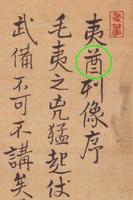 夷酋列像序
毛夷之兇猛起仗
武備不可不講矣